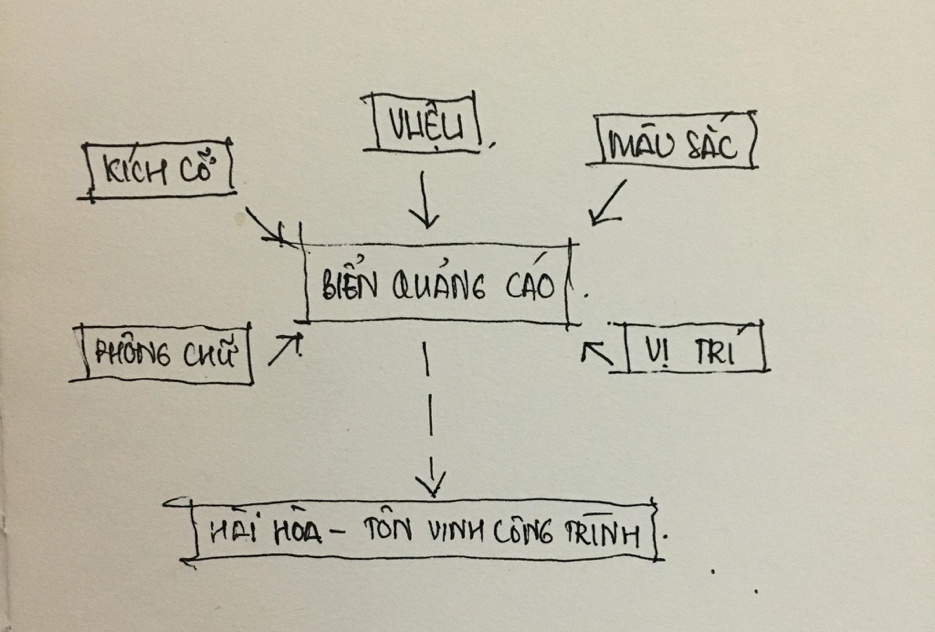 VLIỆU
MÀU SẮC
KÍCH CỠ
BIỂN QUẢNG CÁO
PHÔNG CHỮ
VỊ TRÍ
HÀI HÒA – TÔN VINH CÔNG TRÌNH